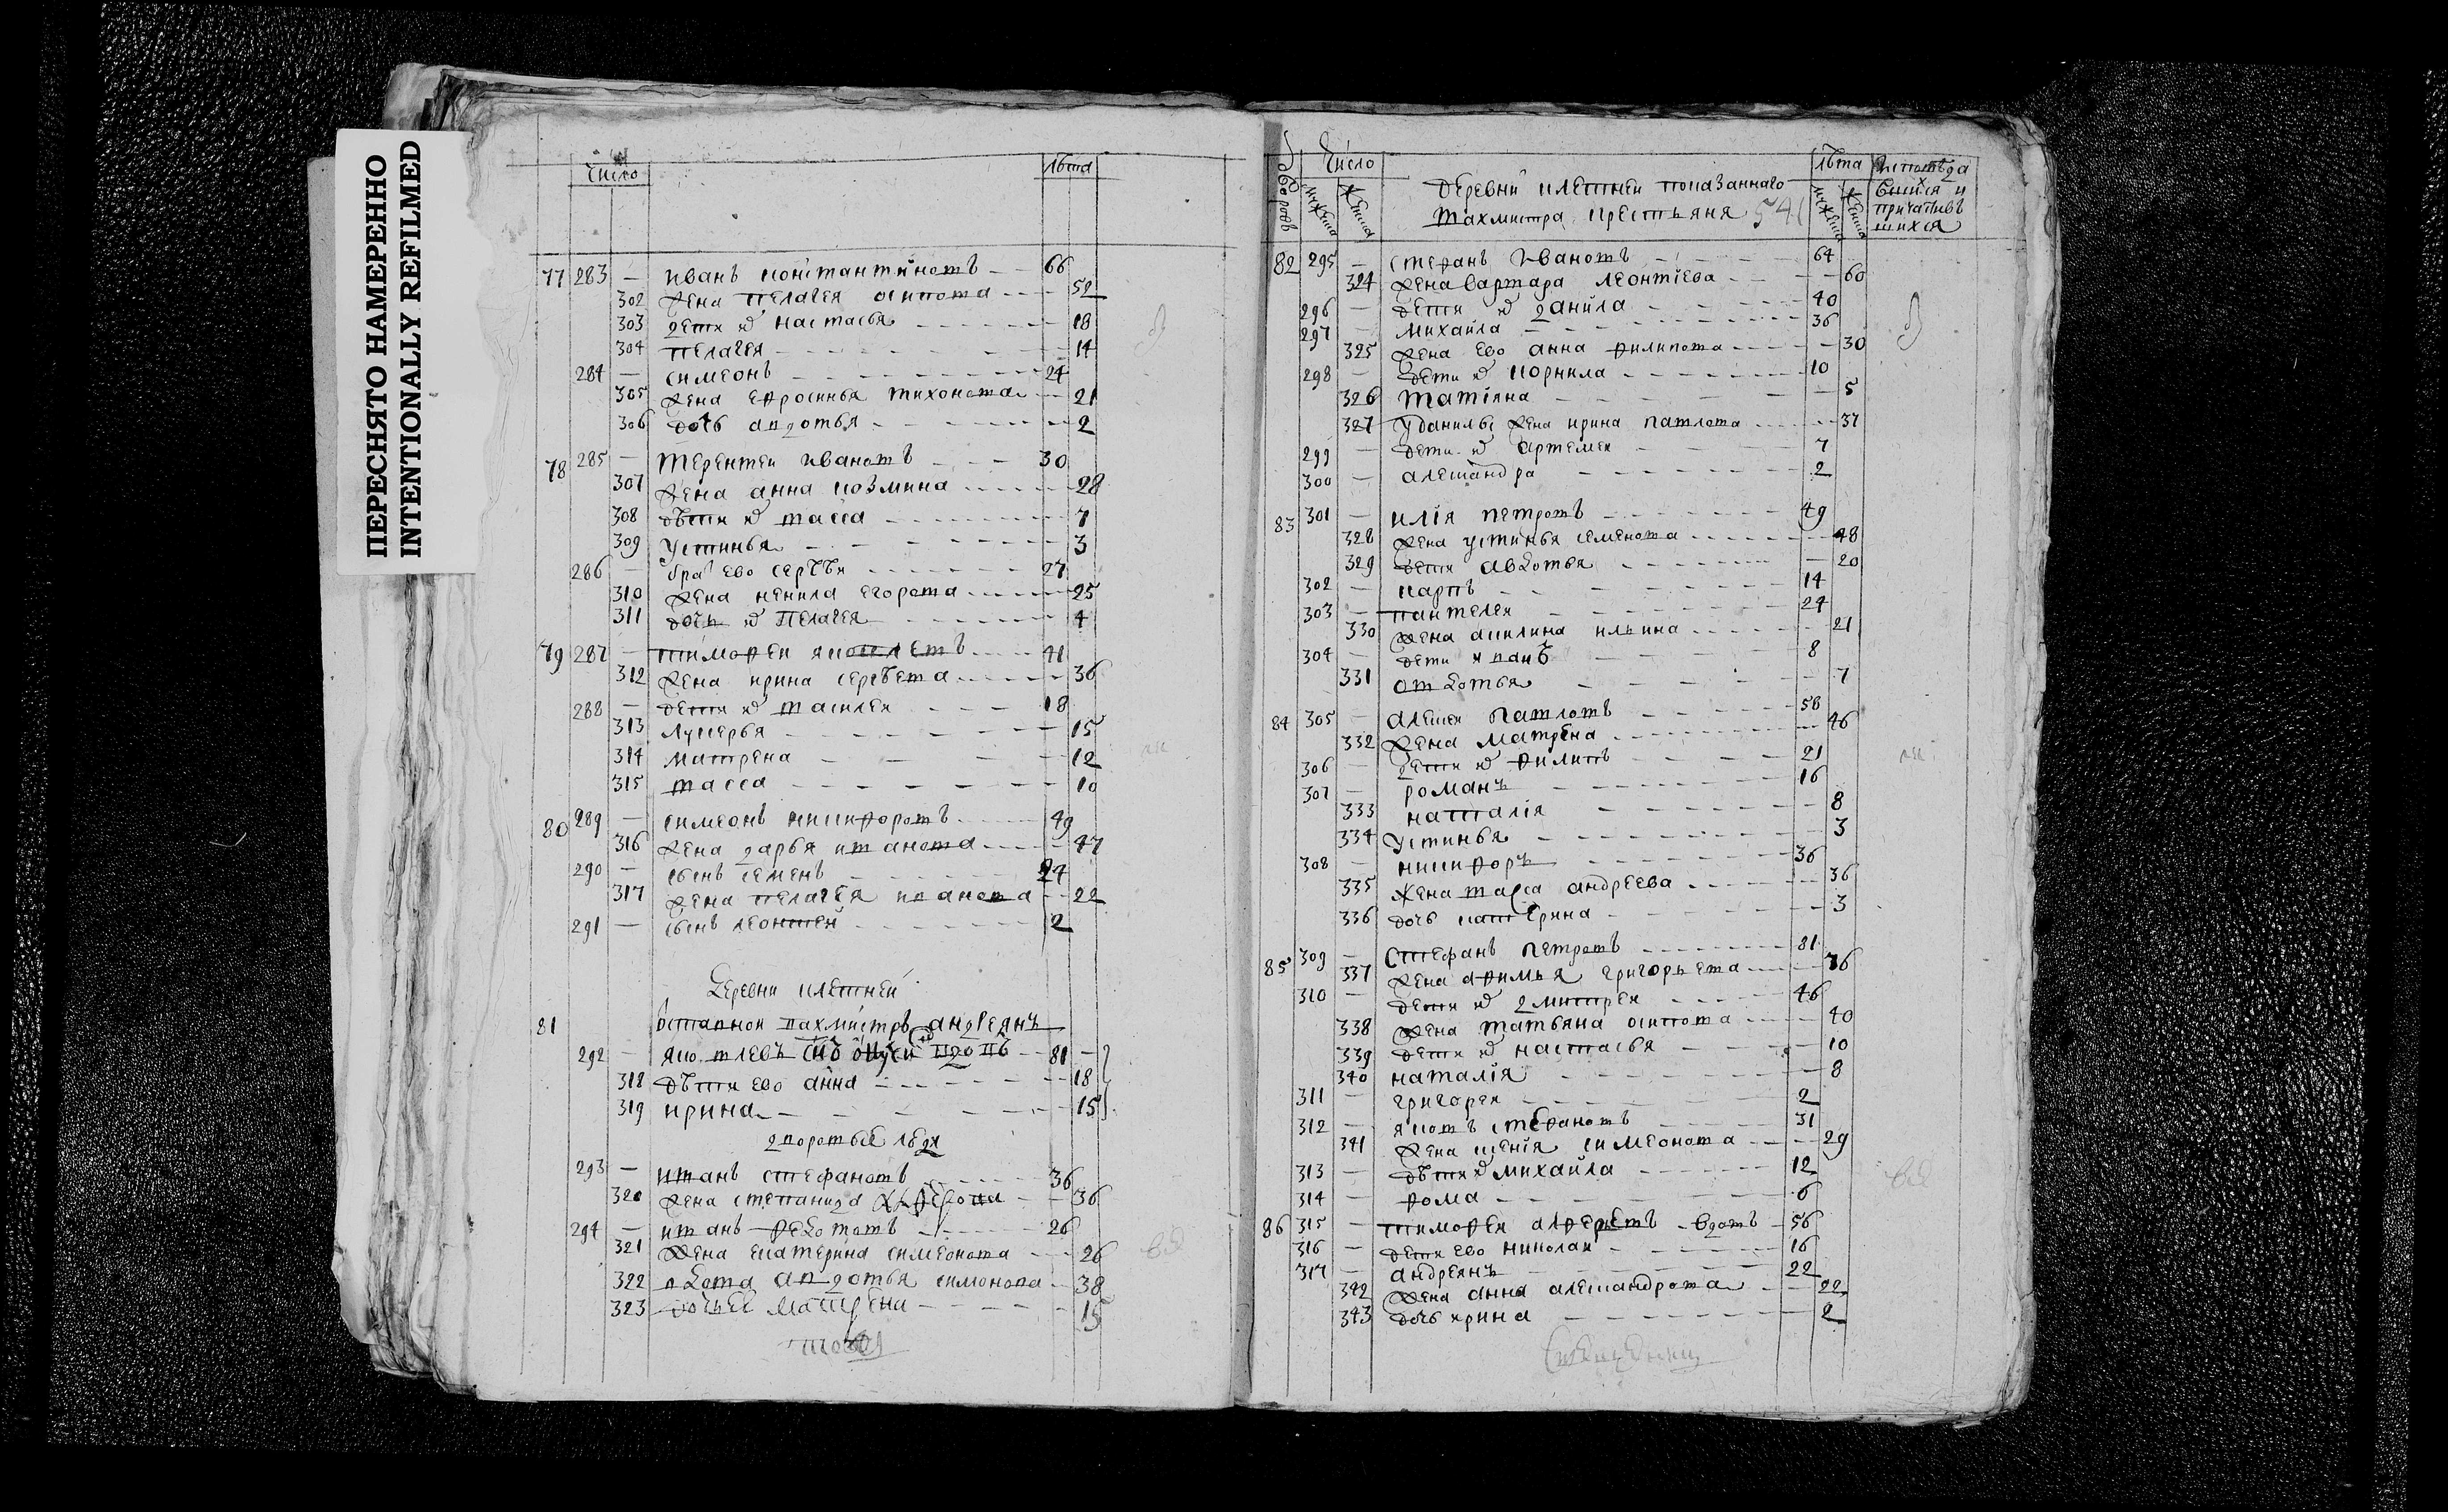 ПЕРЕСНЯТО НАМЕРЕННО
INTENTIONALLY REFILMED
Число Лѣта
77 283 — иванъ константиновъ — 66
302 жена пелагея осипова — 52
303 дети их настасья — 18
304 пелагея — 14
284 — симеонъ — 24
305 жена ефросинья тихонова — 21
306 дочь авдотья — 2
78 285 — терентеи ивановъ — 30
307 жена анна козмина — 28
308 дѣти их васса — 7
309 устинья — 3
286 — братъ ево сергѣи — 27
310 жена ненила егорова — 25
311 дочь их пелагея — 4
79 287 — тимофеи яковлевъ — 41
312 жена ирина сергѣева — 36
288 — дети их василеи — 18
313 лукерья — 15
314 матрена — 12
315 васса — 10
80 289 — симеонъ никифоровъ — 49
316 жена дарья иванова — 47
290 — сынъ семенъ — 24
317 жена пелагея иванова — 22
291 — сынъ леонтеи — 2
Деревни клетнеи
81 отставнои вахмистръ андреянъ
292 — яковлевъ сынъ вдовъ — 81
318 дѣти ево анна — 18
319 ирина — 15
дворовые люди
293 — иванъ стефановъ — 36
320 жена степанида — 36
294 — иванъ федотовъ — 26
321 жена екатерина симеонова — 26
322 вдова авдотья симонова — 38
323 дочь ее матрена — 15
дворовъ Число мужеска женска
деревни клетнеи показаннаго
вахмистра крестьяне 541
Лѣта мужеска женска
исповѣда
вшихся и
причастив
шихся
82 295 — стефанъ ивановъ — 64
324 жена варвара леонтiева — 60
296 — дети их данила — 40
297 — михаила — 36
325 жена ево анна филипова — 30
298 — дети их корнила — 10
326 татiяна — 5
327 у данилы жена ирина павлова — 37
299 — дети их артемеи — 7
300 — александра — 2
83 301 — илiя петровъ — 49
328 жена устинья семенова — 48
329 дети авдотья — 20
302 — карпъ — 14
303 — пантелеи — 24
330 жена акилина ильина — 21
304 — дети иванъ — 8
331 овдотья — 7
84 305 — алексеи павловъ — 58
332 жена матрена — 46
306 — дети их филипъ — 21
307 — романъ — 16
333 наталiя — 8
334 устинья — 3
308 — никифоръ — 36
335 жена васса андреева — 36
336 дочь катерина — 3
85 309 — стефанъ петровъ — 81
337 жена афимья григорьева — 76
310 — дети их дмитреи — 46
338 жена татьяна осипова — 40
339 дети их настасья — 10
340 наталiя — 8
311 — григореи — 2
312 — яковъ стефановъ — 31
341 жена ксенiя симеонова — 29
313 — дѣти их михаила — 12
314 — фома — 6
86 315 — тимофеи алферьевъ — вдовъ — 56
316 — дети ево николаи — 16
317 — андреянъ — 22
342 жена анна александрова — 22
343 дочь ирина — 2